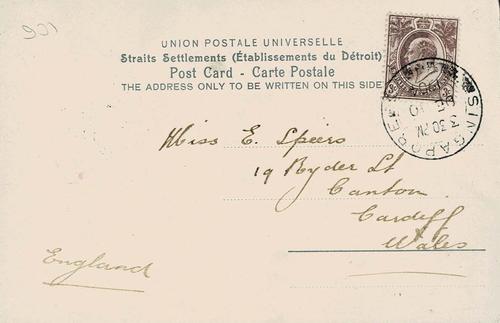 UNION POSTALE UNIVERSELLE
Straits Settlements (Établissements du Détroit)
Post Card - Carte Postale
THE ADDRESS ONLY TO BE WRITTEN ON THIS SIDE
SINGAPORE
3.30 PM
Miss E. Speirs
19 Ryder St
Canton
Cardiff
Wales
England